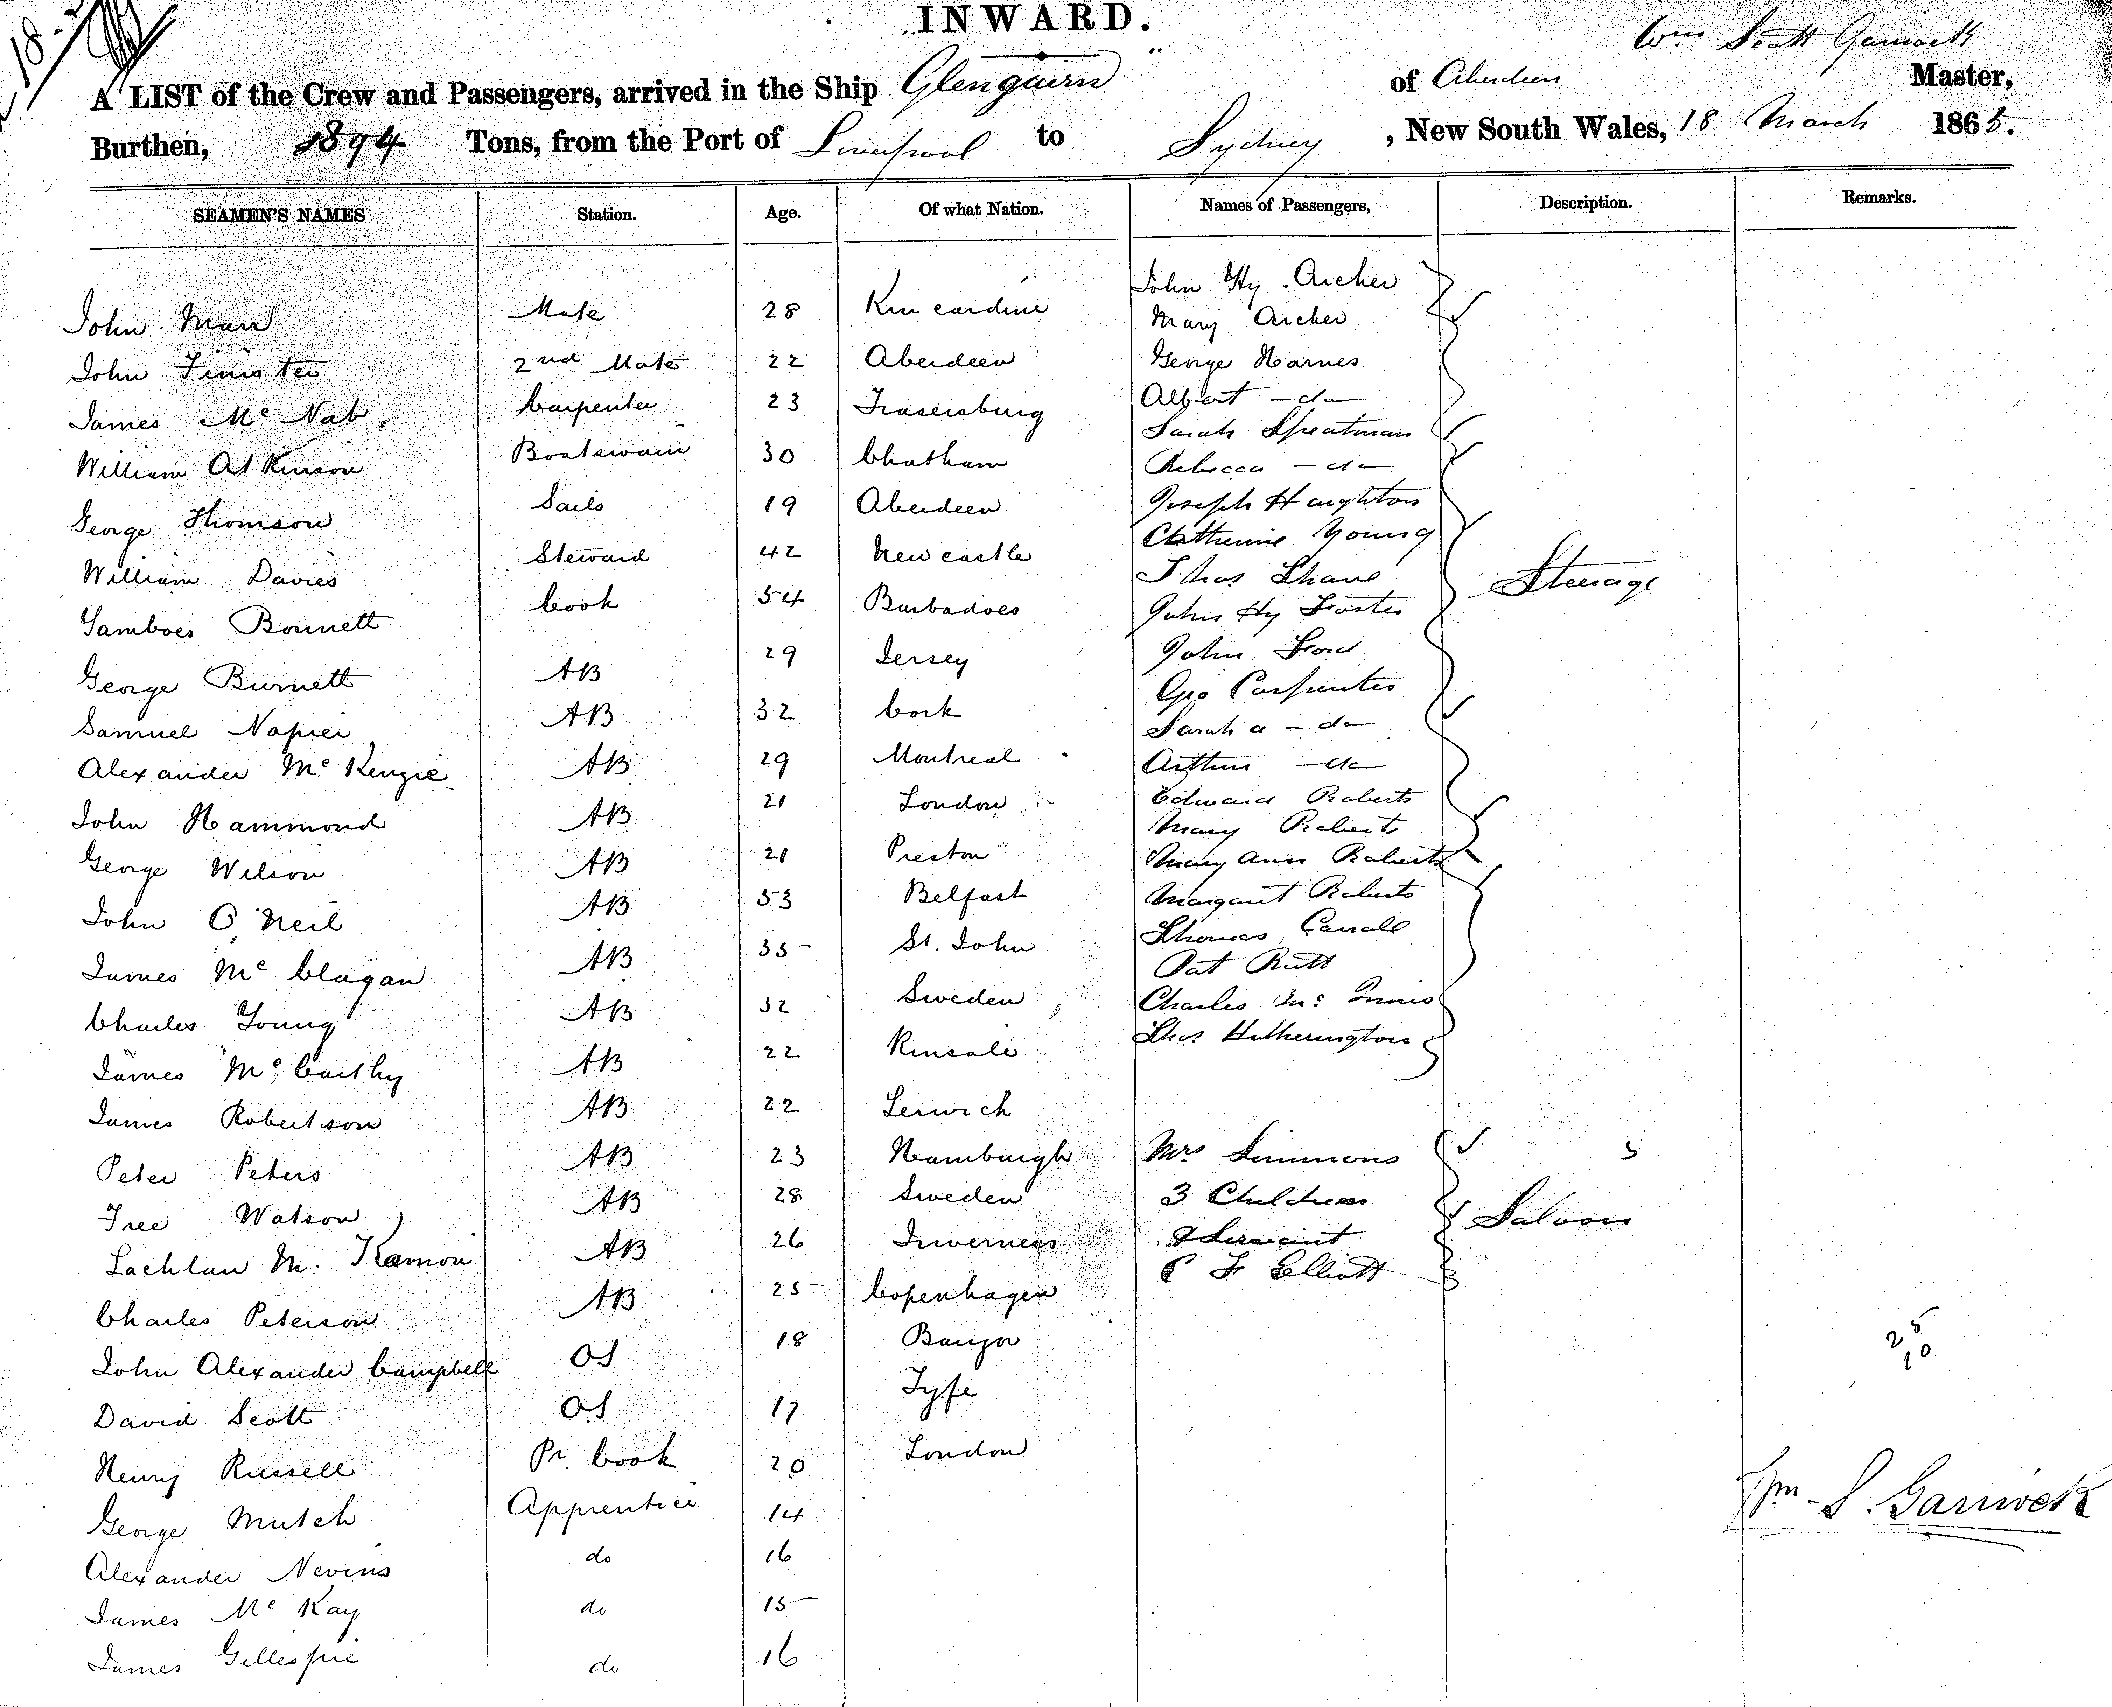 INWARD.
Wm Scott Garrioch
A LIST of the Crew and Passengers, arrived in the Ship Glengairn of Aberdeen Master,
Burthen, 1894 Tons, from the Port of Liverpool to Sydney, New South Wales, 18 March 1868.
SEAMEN'S NAMES Station. Age. Of what Nation. Names of Passengers, Description. Remarks.
John Hy. Archer
John Mair Mate 28 Kincardine Mary Archer
John 2nd Mate 22 Aberdeen George Harnes
James Mc Nab Carpenter 23 Fraserburg Albert - do
Sarah Spreatman
William Atkinson Boatswain 30 Chatham Rebecca - do
George Thomson Sails 19 Aberdeen Joseph Haughton
Catherine Young
William Davies Steward 42 Newcastle Thos Shane Steerage
Bonnett Cook 54 Barbadoes John Hy Foster
George Burnett AB 29 Jersey John Ford
Geo Carpenter
Samuel Napier AB 32 Cork Sarah a - do
Alexander Mc Kenzie AB 29 Montreal Arthur - do
John Hammond AB 21 London Edward Roberts
Mary Roberts
George Wilson AB 21 Preston Mary Ann Roberts
John O'Neil AB 53 Belfast Margaret Roberts
Thomas Carroll
James Mc Clagan AB 35 St. John Pat Rutt
Charles Young AB 32 Sweden Charles Mc Innis
James Mc Carthy AB 22 Kinsale Thos Hetherington
James Robertson AB 22 Lerwick
Peter Peters AB 23 Hamburgh Mrs Simmons 5
Free Watson AB 28 Sweden 3 Children Saloon
Lachlan M. AB 26 Inverness & Servant
Charles Peterson AB 25 Copenhagen F Elliott
John Alexander Campbell OS 18 Bangor 25
10
David Scott OS 17 Fyfe
Henry Russell Pr. Cook 20 London
George Mutch Apprentice 14 Wm S. Garrioch
Alexander Nevins do 16
James Mc Kay do 15
James Gellespie do 16